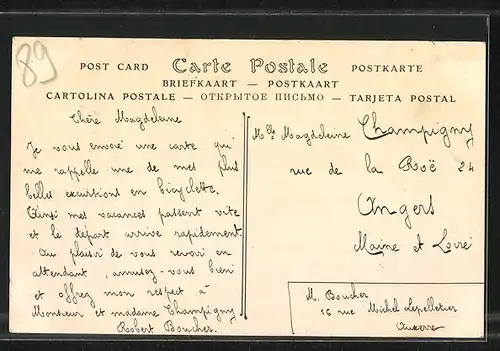 89
POST CARD Carte Postale POSTKARTE
BRIEFKAART — POSTKAART
CARTOLINA POSTALE — ОТКРЫТОЕ ПИСЬМО — TARJETA POSTAL
Chère Magdeleine
Je vous envoie une carte qui
me rappelle une de mes plus
belles excursions en bicyclette.
Ainsi mes vacances passent vite
et le départ arrive rapidement.
Au plaisir de vous revoir en
attendant, amusez-vous bien
et offrez mon respect à
Monsieur et madame Champigny
Robert Boucher.
Mlle Magdeleine Champigny
rue de la Roë 24
Angers
Maine et Loire
M. Boucher
16 rue Michel Lepelletier
Auxerre